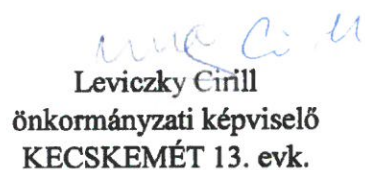 Leviczky Cirill
önkormányzati képviselő
KECSKEMÉT 13. evk.